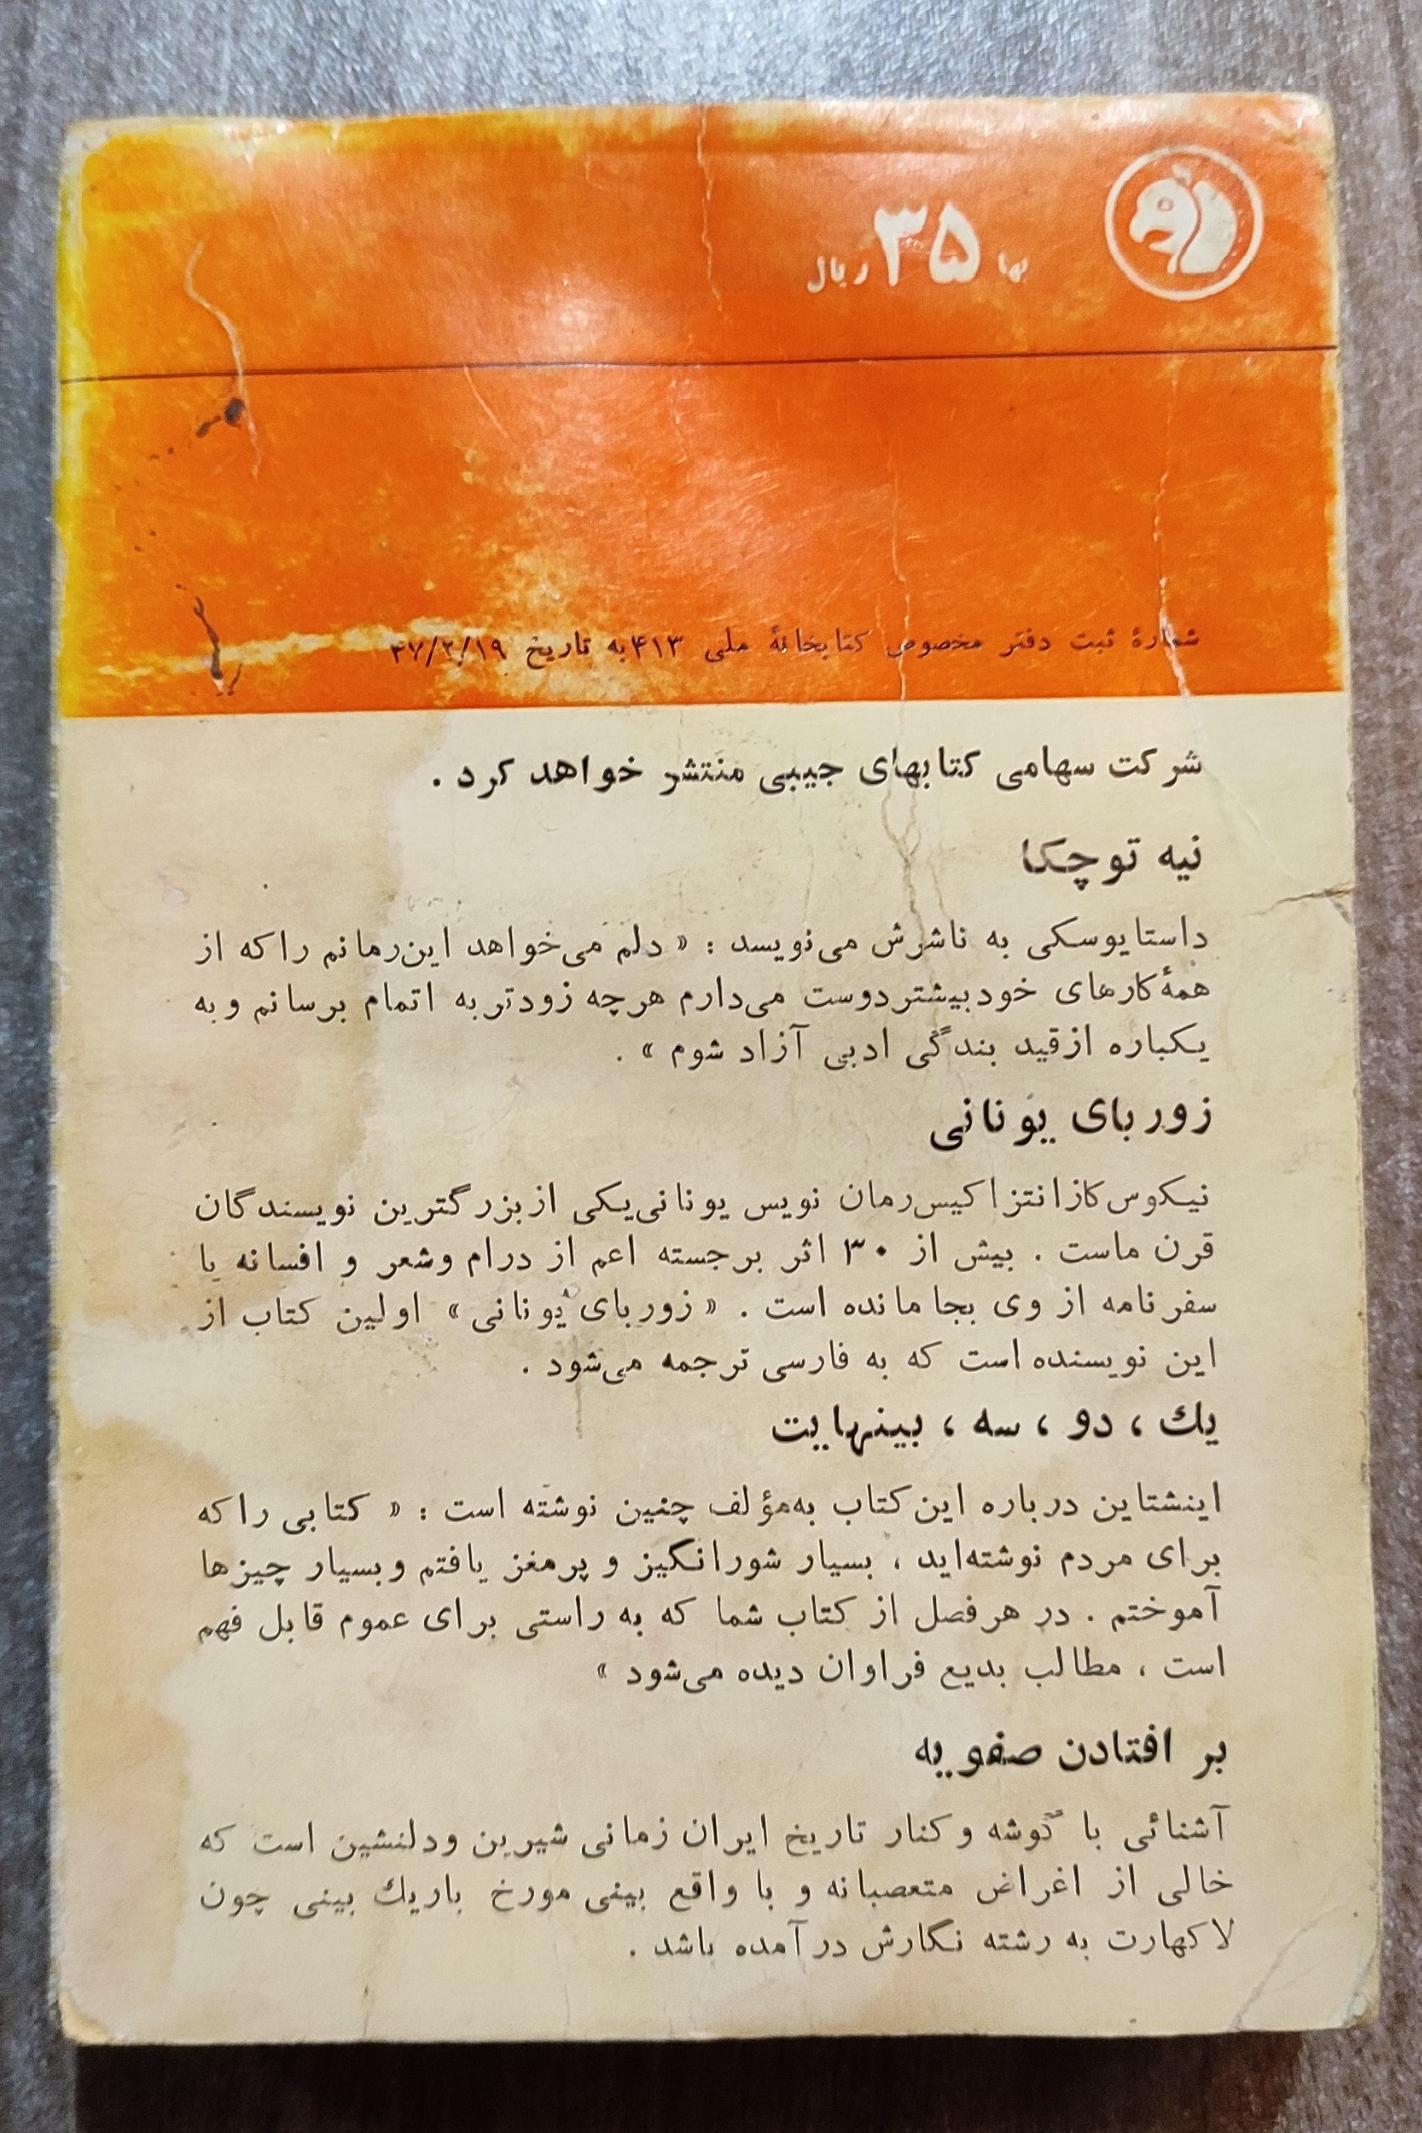 بها ۳۵ ریال
شمارهٔ ثبت دفتر مخصوص کتابخانهٔ ملی ۴۱۳ به تاریخ ۴۷/۳/۱۹
شرکت سهامی کتابهای جیبی منتشر خواهد کرد .
نیه توچکا
داستایوسکی به ناشرش می‌نویسد : « دلم می‌خواهد این‌رمانم راکه از
همهٔ کارهای خود بیشتر دوست می‌دارم هرچه زودتر به اتمام برسانم و به
یکباره از قید بندگی ادبی آزاد شوم » .
زوربای یونانی
نیکوس کازانتزاکیس رمان نویس یونانی یکی از بزرگترین نویسندگان
قرن ماست . بیش از ۳۰ اثر برجسته اعم از درام و شعر و افسانه یا
سفرنامه از وی بجا مانده است . « زوربای یونانی » اولین کتاب از
این نویسنده است که به فارسی ترجمه می‌شود .
یك ، دو ، سه ، بینهایت
اینشتاین درباره این کتاب به‌مؤلف چنین نوشته است : « کتابی را که
برای مردم نوشته‌اید ، بسیار شورانگیز و پرمغز یافتم و بسیار چیزها
آموختم . در هر فصل از کتاب شما که به راستی برای عموم قابل فهم
است ، مطالب بدیع فراوان دیده می‌شود »
بر افتادن صفویه
آشنائی با گوشه و کنار تاریخ ایران زمانی شیرین و دلنشین است که
خالی از اغراض متعصبانه و با واقع بینی مورخ باریك بینی چون
لاکهارت به رشته نگارش در آمده باشد .